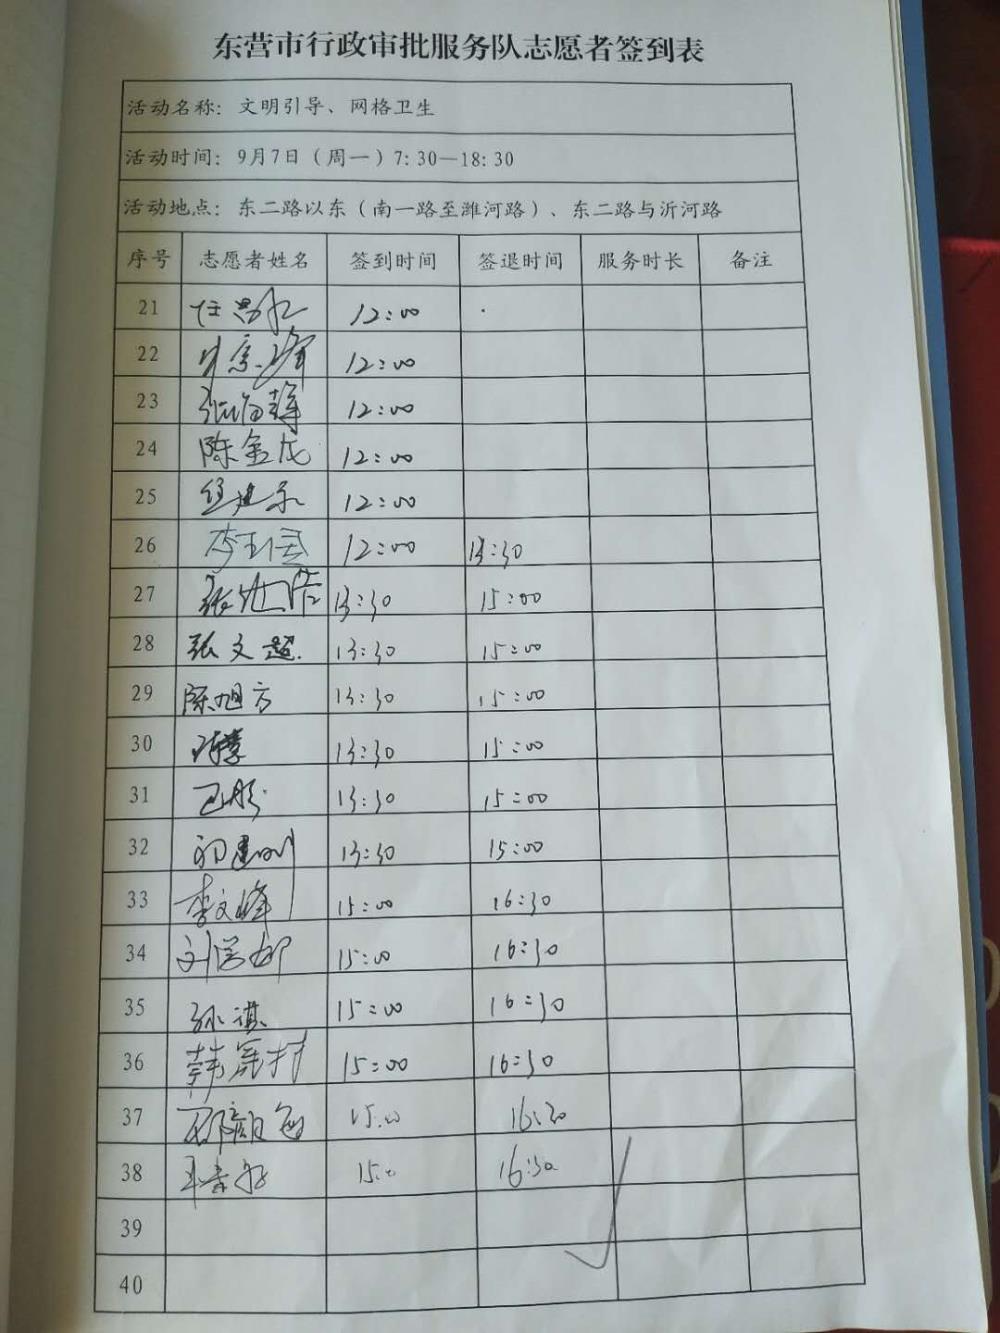 东营市行政审批服务队志愿者签到表
活动名称: 文明引导、网格卫生
活动时间: 9月7日（周一）7:30—18:30
活动地点: 东二路以东（南一路至潍河路）、东二路与沂河路
序号 志愿者姓名 签到时间 签退时间 服务时长 备注
21 12:00
22 12:00
23 12:00
24 陈金龙 12:00
25 12:00
26 12:00 13:30
27 13:30 15:00
28 张文超 13:30 15:00
29 陈旭方 13:30 15:00
30 13:30 15:00
31 13:30 15:00
32 13:30 15:00
33 李文峰 15:00 16:30
34 15:00 16:30
35 孙祺 15:00 16:30
36 15:00 16:30
37 15:00 16:30
38 15:0 16:30
39
40